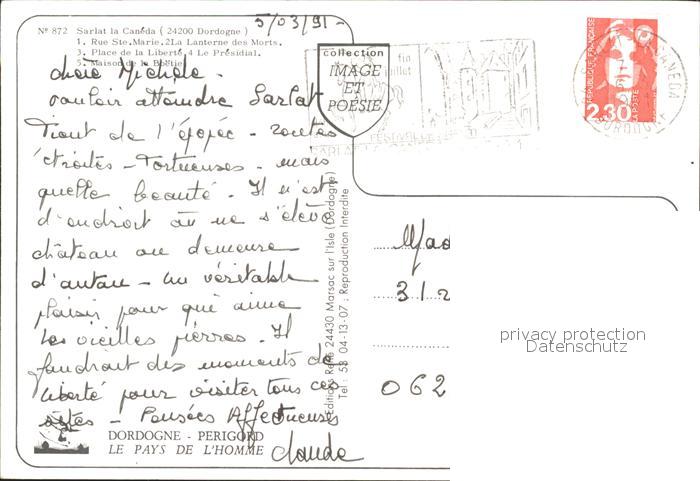 5/03/91-
Nº 872 Sarlat la Canéda ( 24200 Dordogne )
1. Rue Ste.Marie.2La Lanterne des Morts.
3. Place de la Liberté.4 Le Présidial.
5. Maison de la Boëtie
collection
IMAGE
ET
POÉSIE
fin
juillet
RÉPUBLIQUE FRANÇAISE
LA POSTE
2,30
CANEDA
DORDOGNE
chère Michèle -
vouloir attendre Sarlat
Tient de l'épopée - routes
étroites - Tortueuses - mais
quelle beauté - Il n'est
d'endroit où ne s'élève
château ou demeure
d'antan - un véritable
plaisir pour qui aime
les vieilles pierres. Il
faudrait des moments de
liberté pour visiter tous ces
sites - Pensées Affectueuses
Claude
DORDOGNE - PERIGORD
LE PAYS DE L'HOMME
Editions René 24430 Marsac sur l'Isle (Dordogne)
Tel : 53 04-13-07 : Reproduction Interdite
Mad
31
062
privacy protection
Datenschutz